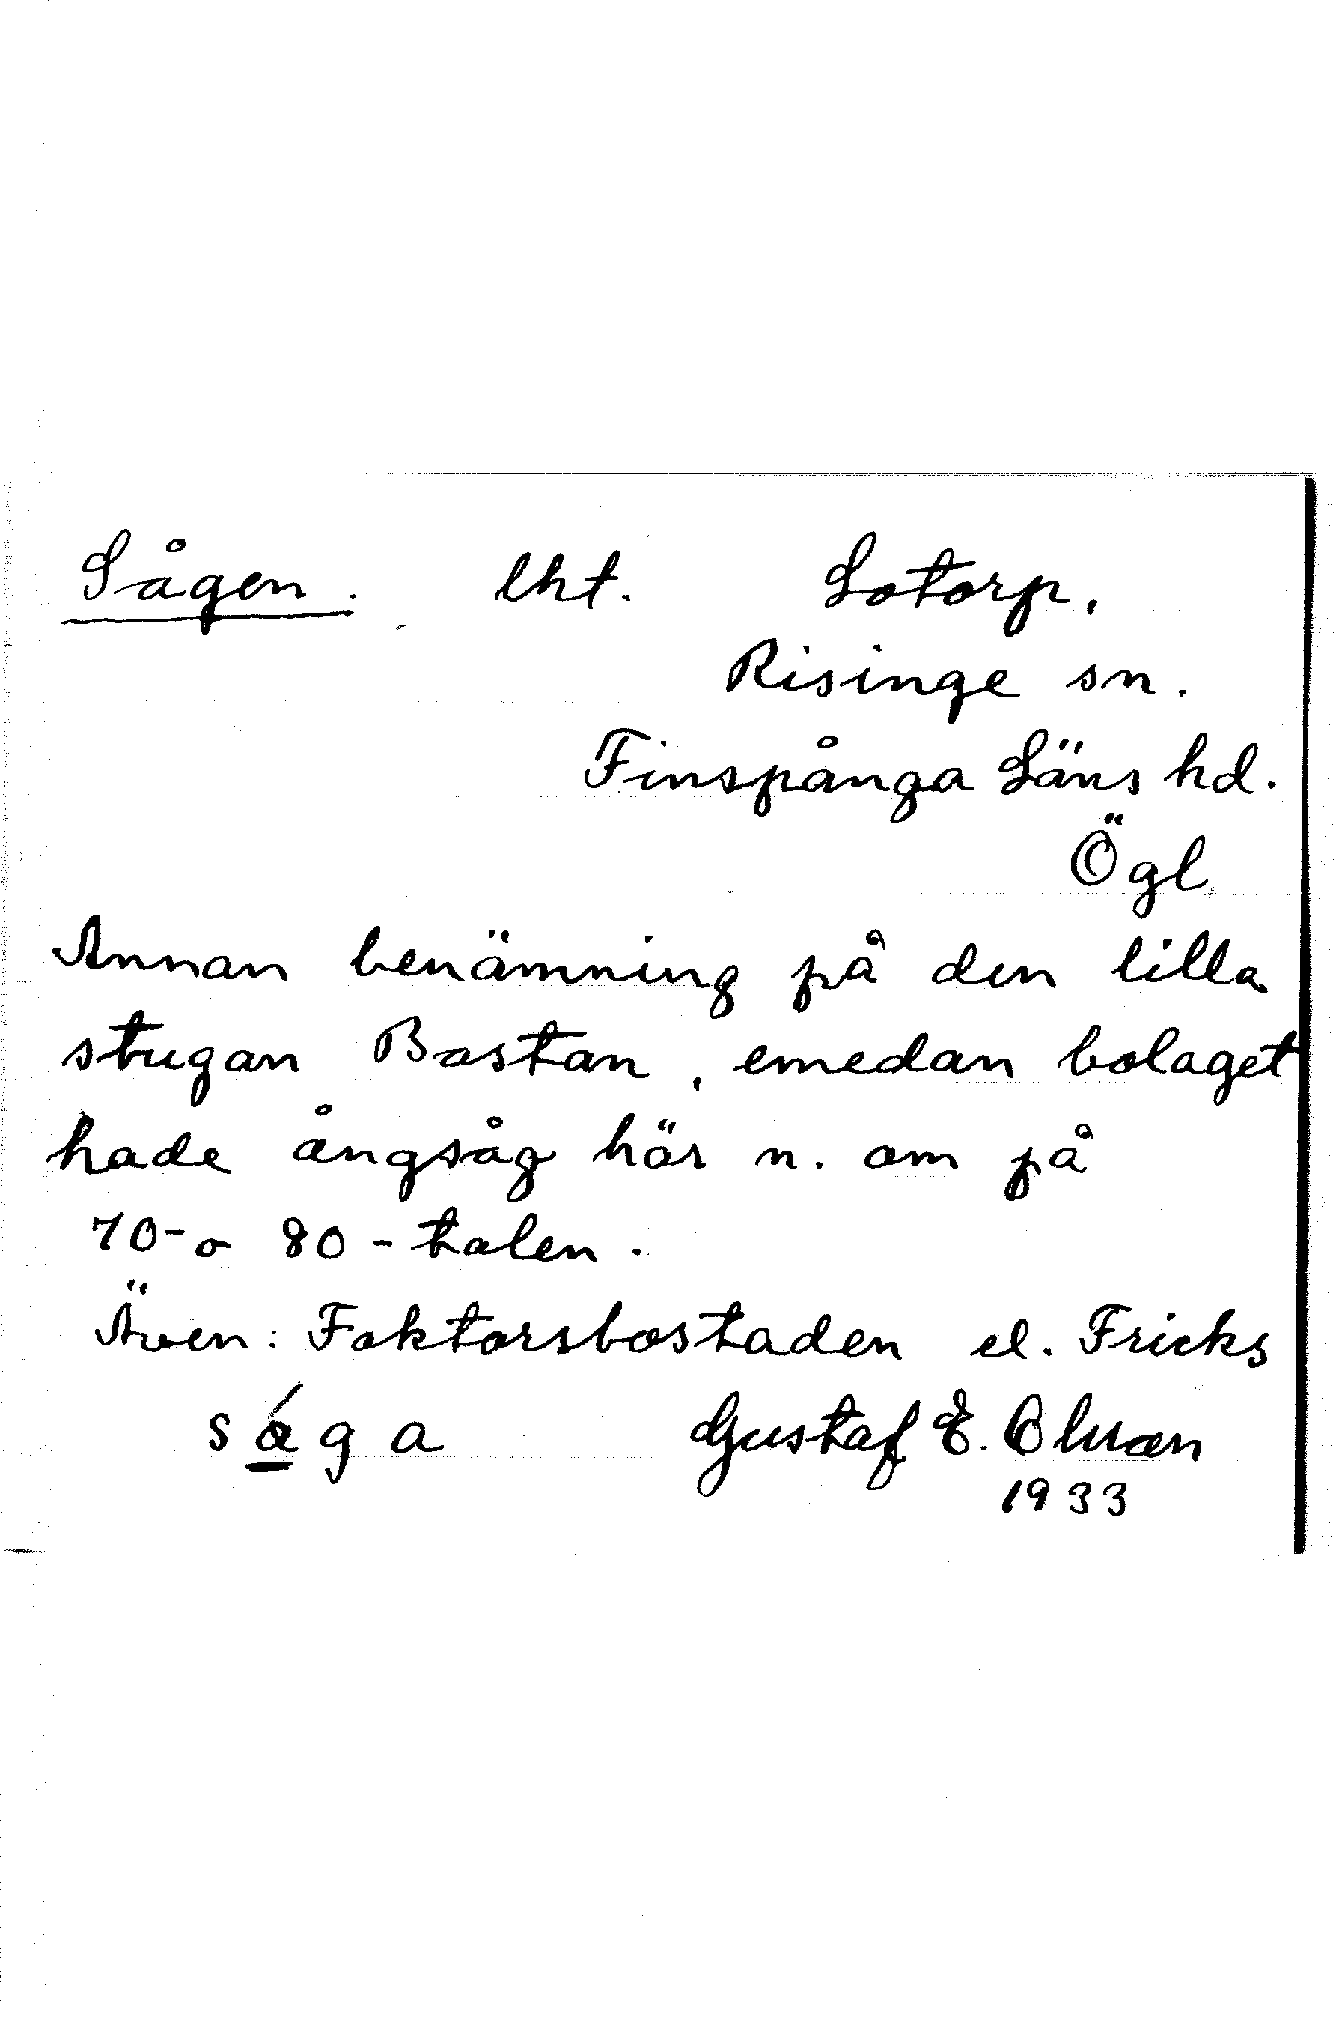 Sågen. lht. Lotorp,
Risinge sn.
Finspånga Läns hd.
Ögl
Annan benämning på den lilla
stugan Bastan, emedan bolaget
hade ångsåg här n. om på
70- o 80-talen.
Även: Faktorsbostaden el. Fricks
sága Gustaf E. Olsson
1933